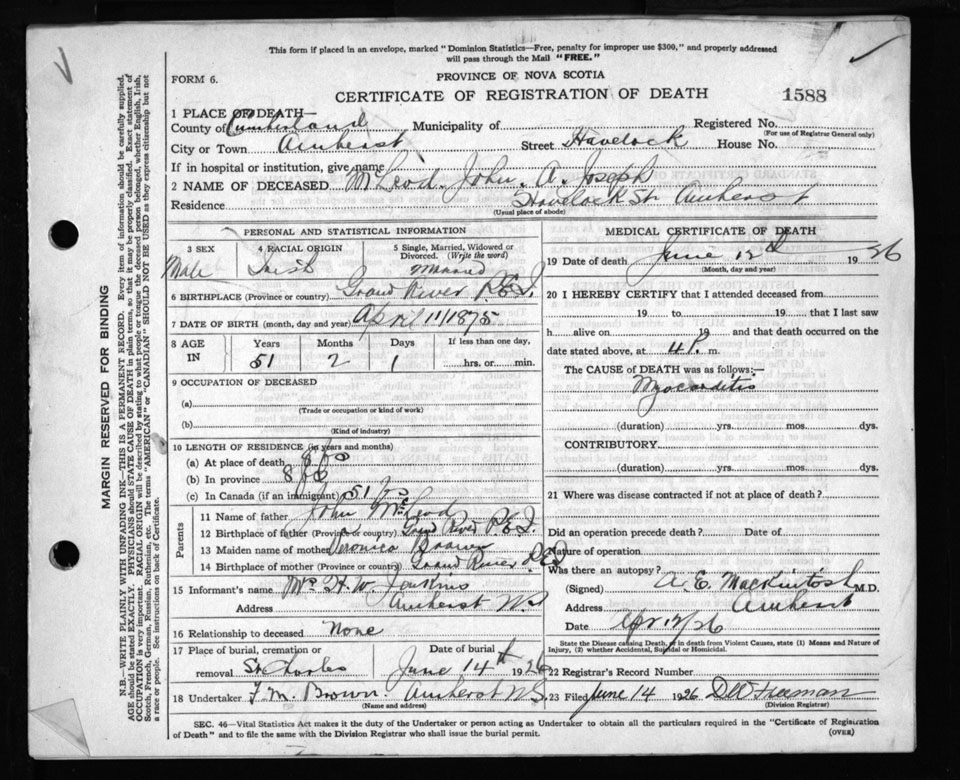 This form if placed in an envelope, marked "Dominion Statistics—Free, penalty for improper use $300," and properly addressed
will pass through the Mail "FREE."
FORM 6.
PROVINCE OF NOVA SCOTIA
CERTIFICATE OF REGISTRATION OF DEATH
1588
1 PLACE OF DEATH—
County of Cumberland Municipality of Registered No.
(For use of Registrar General only)
City or Town Amherst Street Havelock House No.
If in hospital or institution, give name
2 NAME OF DECEASED McLeod, John, A. Joseph
Residence Havelock St. Amherst
(Usual place of abode)
PERSONAL AND STATISTICAL INFORMATION
3 SEX 4 RACIAL ORIGIN 5 Single, Married, Widowed or Divorced. (Write the word)
Male Irish Married
6 BIRTHPLACE (Province or country) Grand River P.E.I.
7 DATE OF BIRTH (month, day and year) April 11/1875
8 AGE IN Years Months Days If less than one day,
51 2 1 hrs. or min.
9 OCCUPATION OF DECEASED
(a)
(Trade or occupation or kind of work)
(b)
(Kind of industry)
10 LENGTH OF RESIDENCE (in years and months)
(a) At place of death 8
(b) In province 8
(c) In Canada (if an immigrant) 51
Parents
11 Name of father John McLeod
12 Birthplace of father (Province or country) Grand River P.E.I.
13 Maiden name of mother Veronica
14 Birthplace of mother (Province or country) Grand River P.E.I
15 Informant's name Mrs H. W. Jenkins
Address Amherst N.S
16 Relationship to deceased None
17 Place of burial, cremation or removal Date of burial
St Charles June 14th 1926
18 Undertaker F. M. Brown Amherst N.S.
(Name and address)
MEDICAL CERTIFICATE OF DEATH
19 Date of death June 12 1926
(Month, day and year)
20 I HEREBY CERTIFY that I attended deceased from
19 to 19 that I last saw
h alive on 19 and that death occurred on the
date stated above, at 4 P. m.
The CAUSE of DEATH was as follows:—
Myocarditis
(duration) yrs. mos. dys.
CONTRIBUTORY.
(duration) yrs. mos. dys.
21 Where was disease contracted if not at place of death?
Did an operation precede death? Date of
Nature of operation
Was there an autopsy?
(Signed) A. E. MacKintosh M.D.
Address Amherst
Date 12/26
State the Disease causing Death, of death from Violent Causes, state (1) Means and Nature of
Injury, (2) whether Accidental, Suicidal or Homicidal.
22 Registrars Record Number
23 Filed June 14 1926 Freeman
(Division Registrar)
SEC. 46—Vital Statistics Act makes it the duty of the Undertaker or person acting as Undertaker to obtain all the particulars required in the "Certificate of Registration
of Death" and to file the same with the Division Registrar who shall issue the burial permit.
(OVER)
MARGIN RESERVED FOR BINDING
N.B.—WRITE PLAINLY WITH UNFADING INK—THIS IS A PERMANENT RECORD. Every item of information should be carefully supplied.
AGE should be stated EXACTLY. PHYSICIANS should STATE CAUSE OF DEATH in plain terms, so that it may be properly classified. Exact statement of
OCCUPATION is very important. RACIAL ORIGIN will be described by stating to what people or tongue the deceased person belonged, whether English, Irish,
Scotch, French, German, Russian, Ruthenian, etc. The terms "AMERICAN" or "CANADIAN" SHOULD NOT BE USED as they express citizenship but not
a race or people. See instructions on back of Certificate.